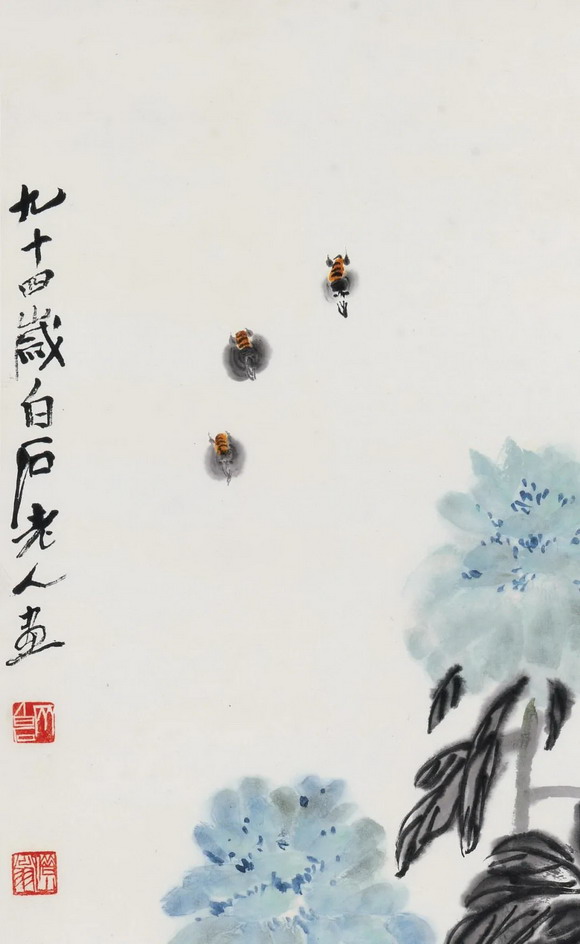 九十四歲白石老人画